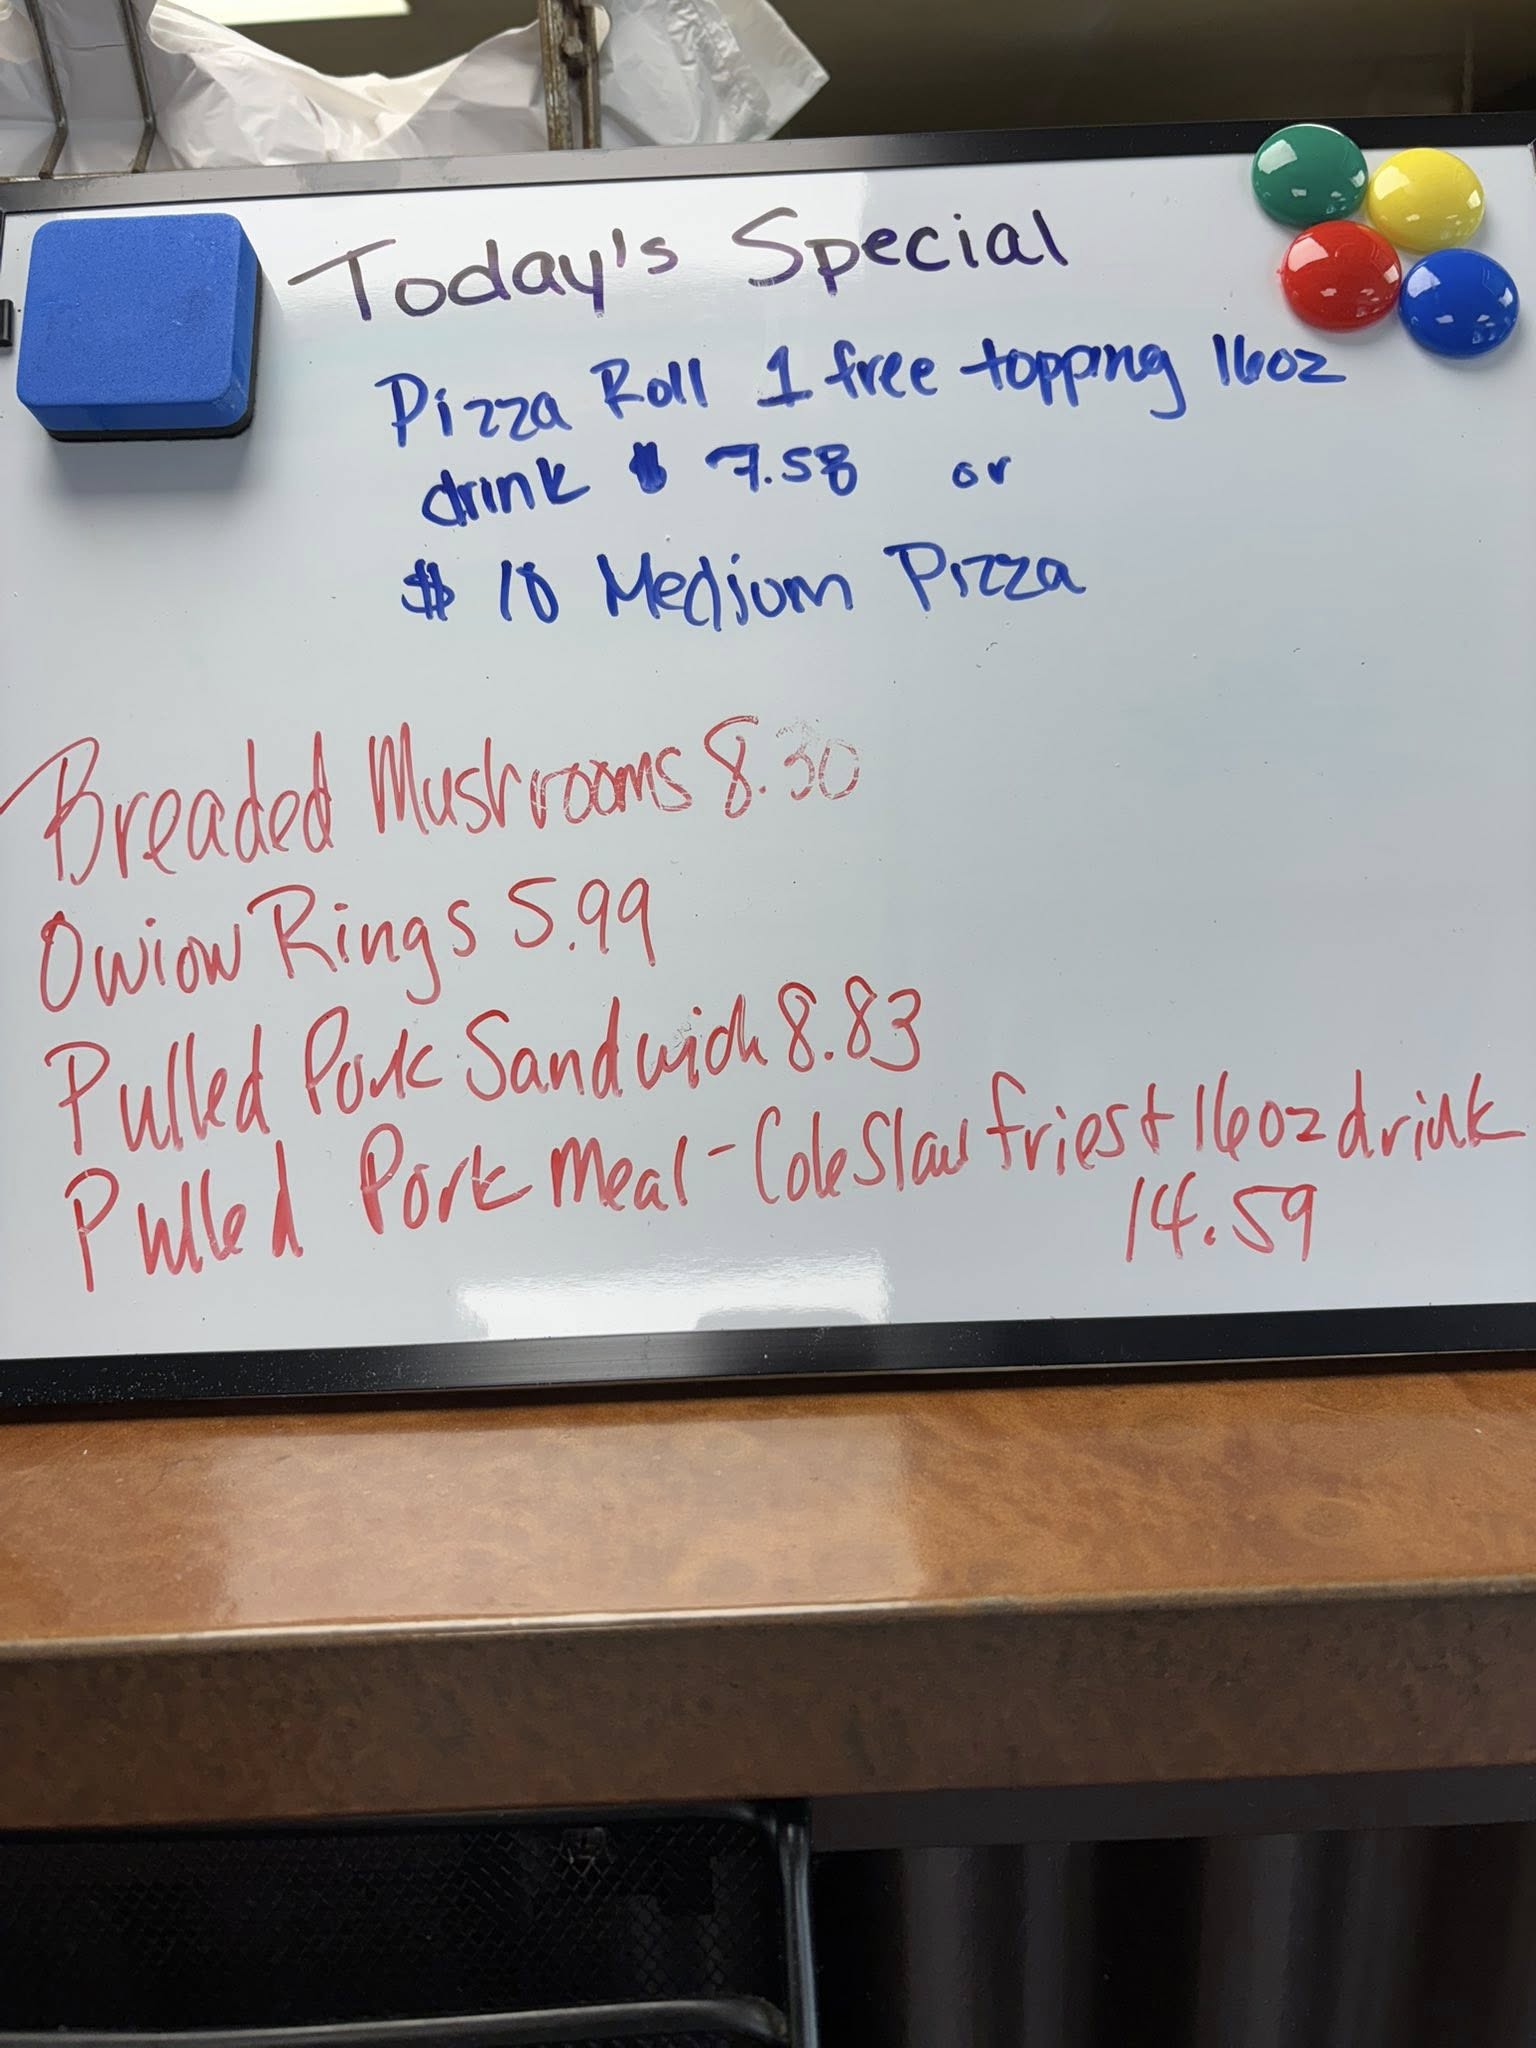 Today's Special
Pizza Roll 1 free topping 16oz
drink $ 7.58 or
$ 10 Medium Pizza
Breaded Mushrooms 8.30
Onion Rings 5.99
Pulled Pork Sandwich 8.83
Pulled Pork Meal - Cole Slaw fries + 16oz drink
14.59